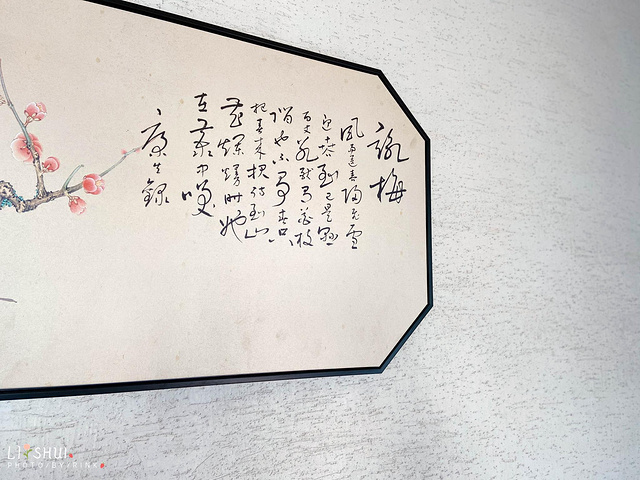 詠梅
風雨送春歸飛雪
迎春到已是懸崖
百丈冰猶有花枝
俏也不爭春只
把春來報待到山
花爛熳時她
在叢中笑
廣生錄
LISHUI.
PHOTO/BY/RINK